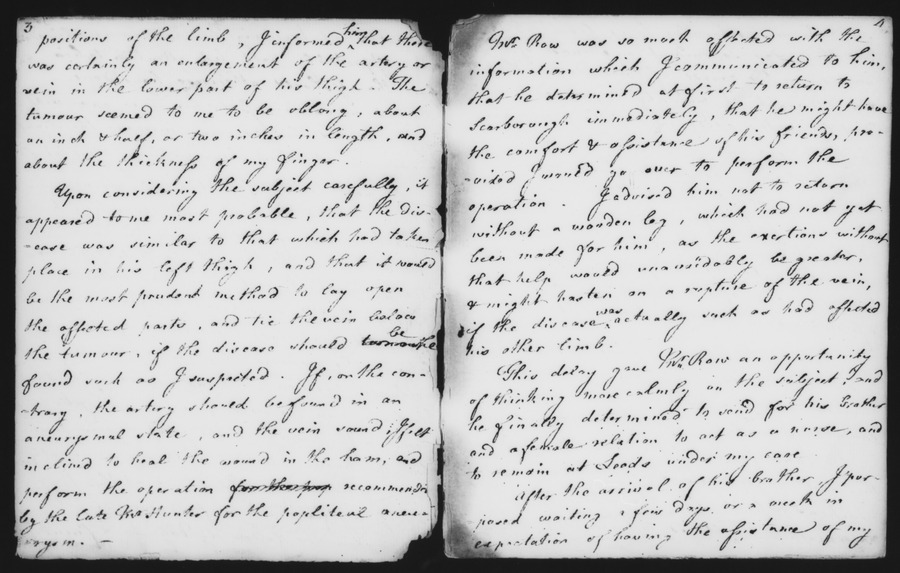 3
positions of the limb, I informed him that there
was certainly an enlargement of the artery or
vein in the lower part of his thigh. The
tumour seemed to me to be oblong, about
an inch & half, or two inches in length, and
about the thickness of my finger.
Upon considering the subject carefully, it
appeared to me most probable, that the dis-
-ease was similar to that which had taken
place in his left thigh, and that it would
be the most prudent method to lay open
the affected parts, and tie the vein below
the tumour, if the disease should be
found such as I suspected. If, on the con-
-trary, the artery should be found in an
aneurysmal state, and the vein sound, I felt
inclined to heal the wound in the ham, and
perform the operation for the pop recommended
by the late Mr. Hunter for the popliteal aneu-
-rysm. -
4
Mr. Row was so much affected with the
information which I communicated to him,
that he determined at first to return to
Scarborough immediately, that he might have
the comfort & assistance of his friends, pro-
-vided I would go over to perform the
operation. I advised him not to return
without a wooden leg, which had not yet
been made for him, as the exertions without
that help would unavoidably be greater,
& might hasten on a rupture of the vein,
if the disease was actually such as had affected
his other limb.
This delay gave Mr. Row an opportunity
of thinking more calmly on the subject, and
he finally determined to send for his brother
and a female relation to act as a nurse, and
to remain at Leeds under my care.
After the arrival of his brother, I pur-
posed waiting a few days, or a week in
expectation of having the assistance of my